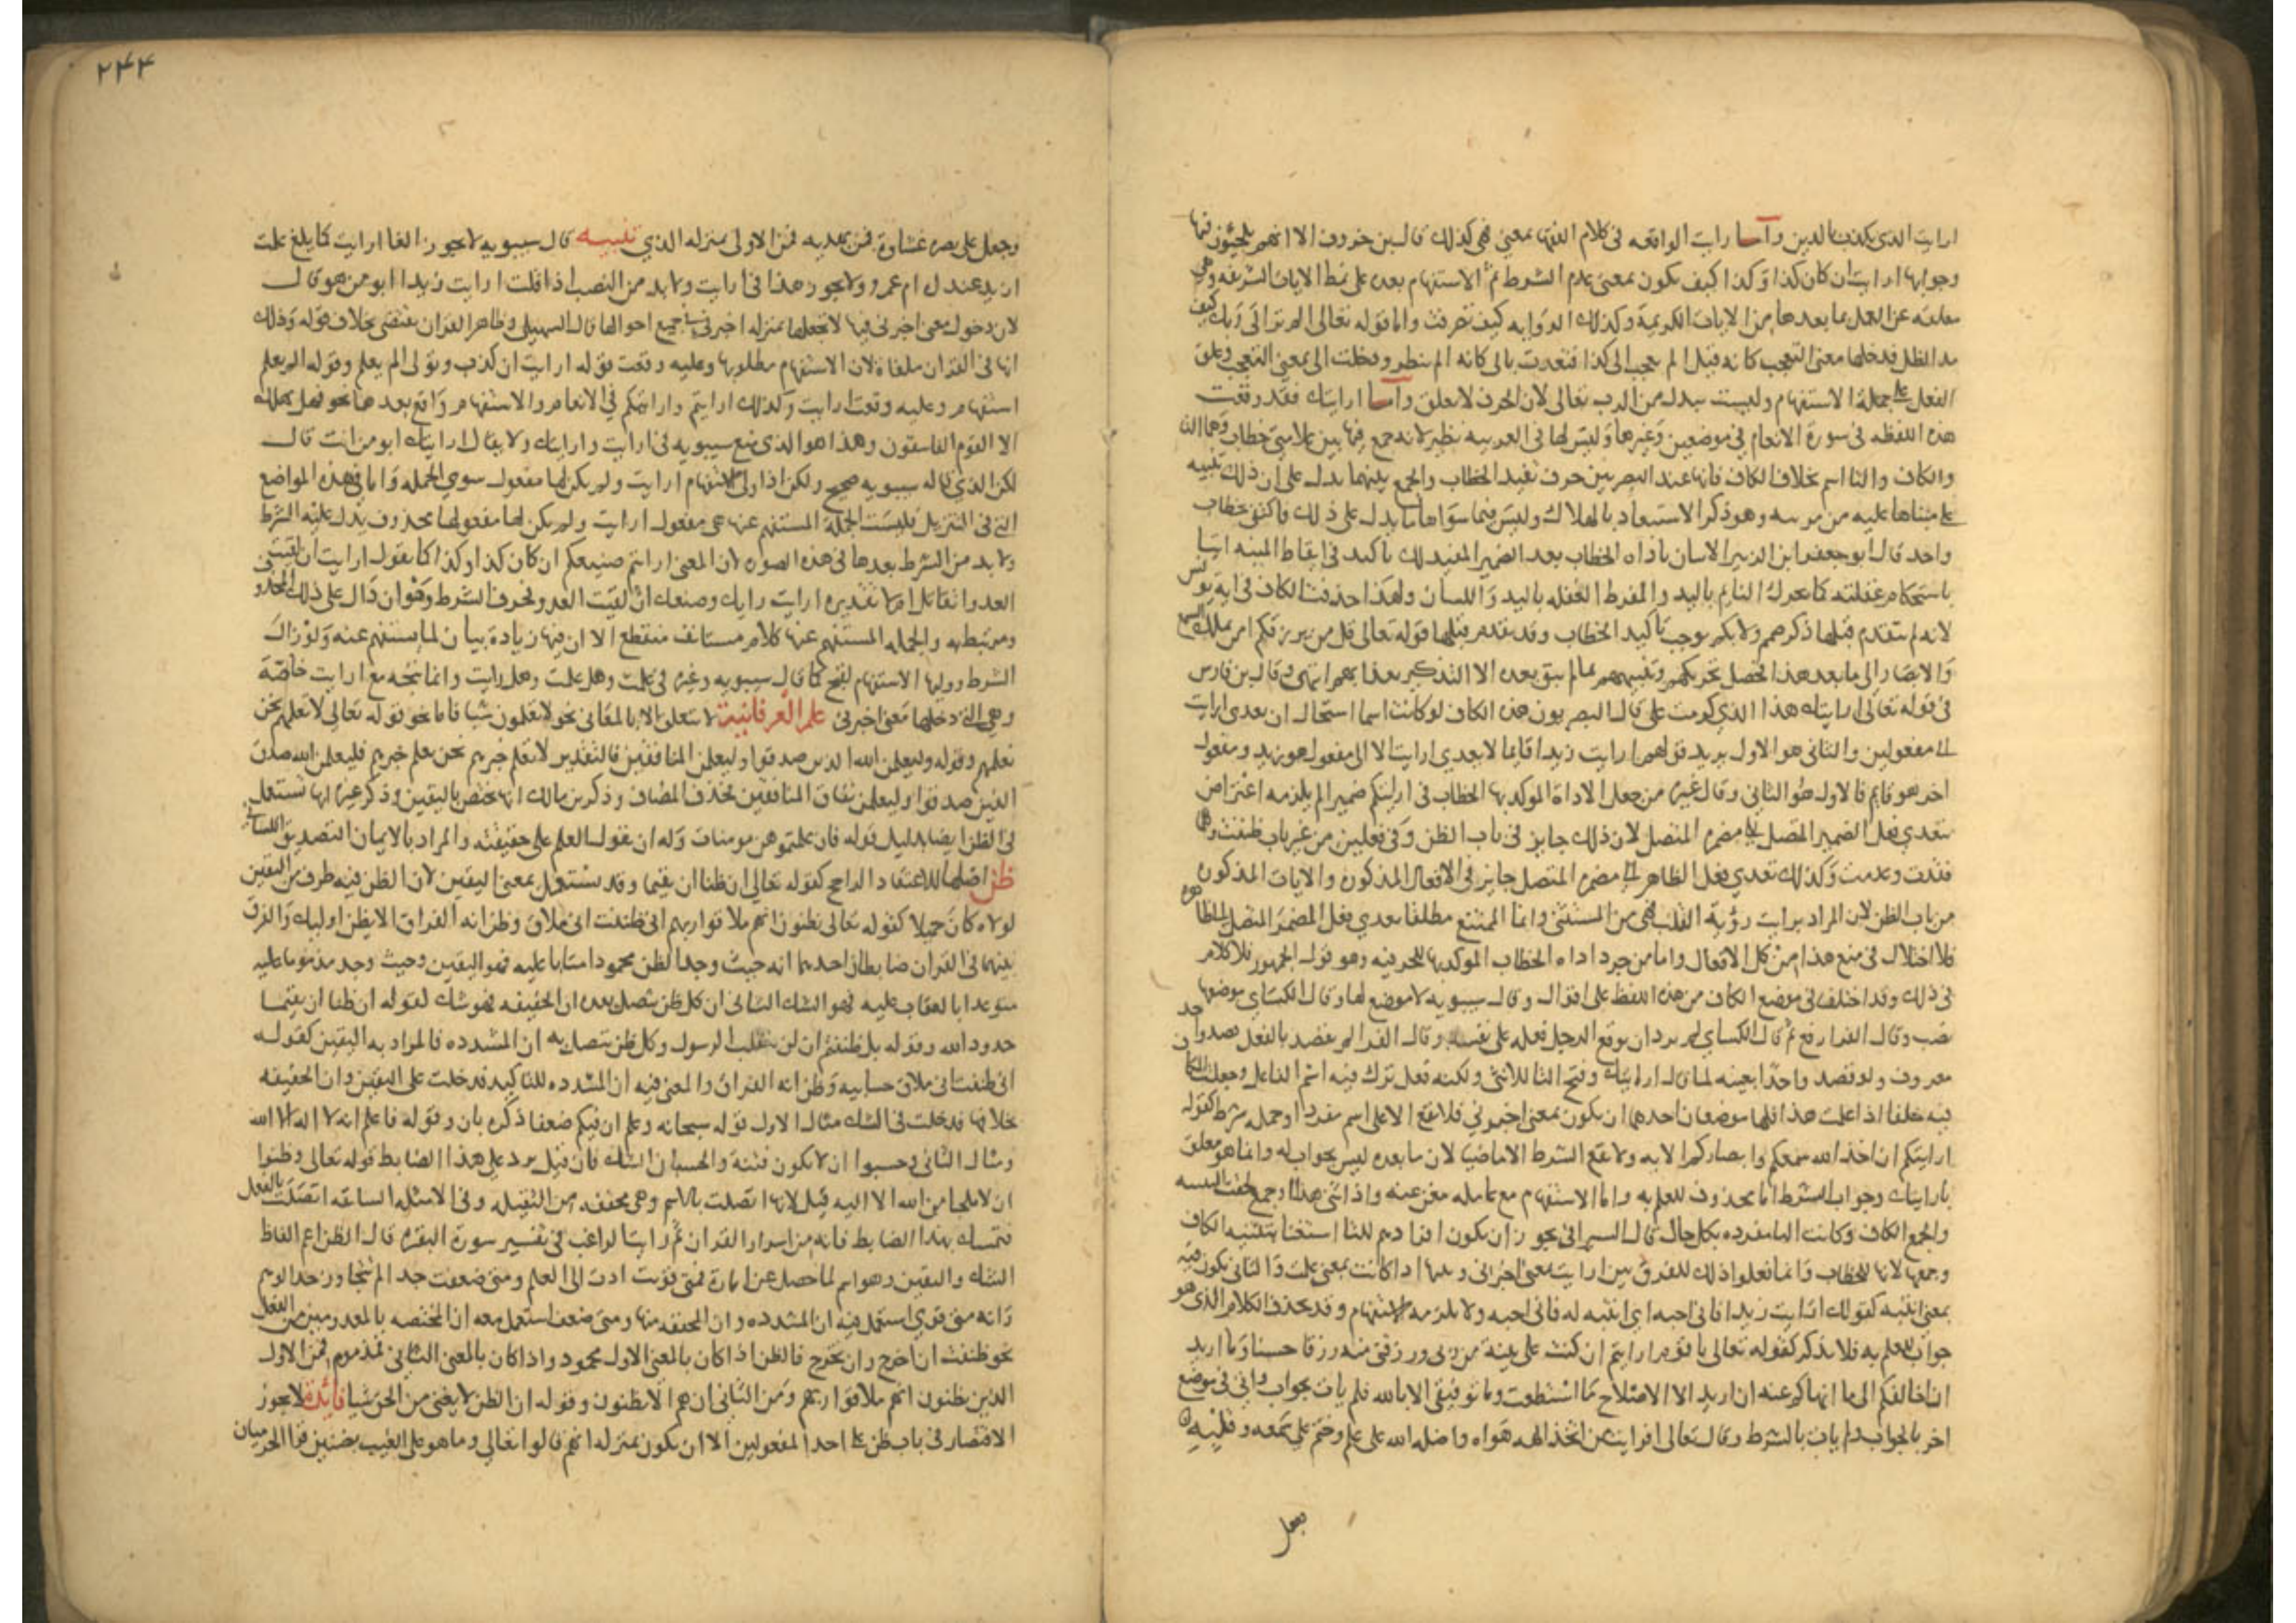 ارايت الذي يكذب بالدين واما ارايت الواقعه في كلام الفقها بمعنى فهي كذلك قال بن خروف الا انهم يلجئون فيها
وجوابها ارايت ان كان كذا وكذا كيف يكون بمعنى عدم الشرط ثم الاستفهام بعده على نمط الايات الشريفه وهي
معلقه عن العمل بما بعدها من الايات الكريمة وكذلك الروايه كيف تصرفت واما قوله تعالى الم تر الى ربك كيف
مد الظل فدخلها معنى التعجب كانه قيل الم تعجب الى كذا فتعدت بالى كانه الم تنظر ودخلت الى بمعنى التعجب وعلق
الفعل على جملة الاستفهام وليست ببدل من الرب تعالى لان الحرف لا يعلق واما ارايتك فقد وقعت
هذه اللفظه في سورة الانعام في موضعين وغيرها وليس لها في العربيه نظير لانه جمع فيها بين علامتي خطاب وهما التا
والكاف والتا اسم بخلاف الكاف فانها عند البصريين حرف تفيد الخطاب والجمع بينهما يدل على ان ذلك تنبيه
على مبناها عليه من مرتبه وهو ذكر الاستبعاد بالهلاك وليس فيما سواها ما يدل على ذلك فاكتفى بخطاب
واحد قال ابو جعفر ابن الزبير الاتيان باداه الخطاب بعد الضمير المفيد لذلك تاكيد في ايقاظ المنبه
باستحكام غفلته كما يحرك النايم باليد والمفرط الغفله باليد واللسان ولهذا حذفت الكاف في ايه يونس
لانه لم يتقدم قبلها ذكر صمم ولا بكم يوجب تاكيد الخطاب وقد تقدم قبلها قوله تعالى قل من يرزقكم امن يملك السمع
والابصار الى ما بعد هذا فحصل تحريكهم وتنبيههم بما لم يبق بعده الا التذكير بعذابهم انتهى وقال بن فارس
في قوله تعالى ارايتك هذا الذي كرمت علي قال البصريون هذه الكاف لو كانت اسما استحال ان يعدى ارايت
الى مفعولين والثاني هو الاول يريد قولهم ارايت زيدا قايما لا يعدي ارايت الا الى مفعول هو زيد ومفعول
اخر هو قايم فالاول هو الثاني وقال غيره من جعل الاداة الموكد بها الخطاب في ارايتكم ضميرا لم يلزمه اعتراض
بتعدي فعل الضمير المتصل الى مضمره المتصل لان ذلك جايز في باب الظن وفي فعلين من غير باب ظننت وهما
فقدت وعدمت وكذلك تعدي فعل الظاهر الى مضمره المتصل جايز في الافعال المذكوره والايات المذكوره
من باب الظن لان المراد برايت رؤية القلب فهي من المستثنى وانما الممتنع مطلقا تعدي فعل المضمر المتصل الى ظاهره
فلا اختلال في منع هذا من كل الافعال واما من جرد اداه الخطاب الموكد بها للحرفيه وهو قول الجمهور فلا كلام
في ذلك وقد اختلف في موضع الكاف من هذه اللفظ على اقوال وقال سيبويه لا موضع لها وقال الكساي موضعها
نصب وقال الفرا رفع ثم قال الكساي لم يرد ان يوقع الرجل فعله على نفسه وقال الفرا لم يقصد بالفعل قصد واحد
معروف ولو قصد واحدا بعينه لما قال ارايتك وفتح التا للانثى ولكنه فعل ترك فيه اسم الفاعل وجعلت الكاف
فيه خلفا اذا علمت هذا فلها موضعان احدهما ان يكون بمعنى اخبروني فلا تقع الا على اسم مفرد او جمله شرط كقوله
ارايتكم ان اخذ الله سمعكم وابصاركم الايه ولا يقع الشرط الا ماضيا لان ما بعده ليس بجواب له وانما هو معلق
بارايتك وجواب الشرط اما محذوف للعلم به واما الاستفهام مع عامله مغن عنه واذا ثني هذا او جمع لحقت التثنيه
والجمع الكاف وكانت التا مفرده بكل حال قال السيرافي يجوز ان يكون افرادهم للتا استغنا بتثنيه الكاف
وجمعها لانها للخطاب وانما فعلوا ذلك للفرق بين ارايت بمعنى اخبرني وغيرها اذا كانت بمعنى علمت والثاني تكون فيه
بمعنى انتبه كقولك ارايت زيدا فاني احبه اي انتبه له فاني احبه ولا يلزمه الاستفهام وقد يحذف الكلام الذي هو
جواب للعلم به فلا يذكر كقوله تعالى يا قوم ارايتم ان كنت على بينة من ربي ورزقني منه رزقا حسنا وما اريد
ان اخالفكم الى ما انهاكم عنه ان اريد الا الاصلاح ما استطعت وما توفيقي الا بالله فلم يات بجواب واتى في موضع
اخر بالجواب ولم يات بالشرط وقال تعالى افرايت من اتخذ الهه هواه واضله الله على علم وختم على سمعه وقلبه
وجعل على بصره غشاوة فمن يهديه فمن الاولى بمنزله الذي تنبيه قال سيبويه لا يجوز الغا ارايت كما يلغ علمت
ازيد عندك ام عمرو ولا يجوز هذا في ارايت ولا بد من النصب اذا قلت ارايت زيدا ابو من هو قال
لان دخول معنى اخبرني فيها لا تجعلها بمنزله اخبرني في جميع احوالها قال السهيلي وظاهر القران يقتضي بخلاف قوله وذلك
انها في القران ملغاة لان الاستفهام مطلوبها وعليه وقعت قوله ارايت ان كذب وتولى الم يعلم وقوله الم يعلم
استفهام وعليه وقعت ارايت وكذلك ارايتم وارايتكم في الانعام والاستفهام واقع بعدها نحو فهل يهلك
الا القوم الفاسقون وهذا هو الذي منع سيبويه في ارايت وارايتك ولا يقال ارايتك ابو من انت قال
لكن الذي قاله سيبويه صحيح ولكن اذا ولي الاستفهام ارايت ولم يكن لها مفعول سوى الجمله واما في هذه المواضع
التي في التنزيل فليست الجملة المستفهم عنها هي مفعول ارايت ولم يكن لها مفعولها محذوف يدل عليه الشرط
ولا بد من الشرط بعدها في هذه الصوره لان المعنى ارايتم صنيعكم ان كان كذا وكذا كما يقول ارايت ان لقيت
العدو اتقاتل ام لا تقديره ارايت رايك وصنعك ان لقيت العدو فحرف الشرط وهو ان دال على ذلك المحذوف
ومرتبط به والجمله المستفهم عنها كلام مستانف منقطع الا ان فيها زيادة بيان لما يستفهم عنه ولو زال
الشرط ووليها الاستفهام لقبح كما قال سيبويه وغيره في علمت وهل علمت وهل رايت وانما تجه مع ارايت خاصة
وهي التي دخلها معنى اخبرني علم العرفانية لا تتعلق الا بالمعاني نحو لا يعلمون شيا فاما نحو قوله تعالى لا تعلمهم نحن
نعلمهم وقوله وليعلمن الله الذين صدقوا وليعلمن المنافقين فالتقدير لا تعلم خبرهم نحن نعلم خبرهم فليعلمن الله صدق
الذين صدقوا وليعلمن نفاق المنافقين بحذف المضاف وذكر بن مالك انها تختص باليقين وذكر غيره انها تستعمل
في الظن ايضا بدليل قوله فان علمتموهن مومنات وله ان يقول العلم على حقيقته والمراد بالايمان التصديق اللساني
ظن اصلها للاعتقاد الراجح كقوله تعالى ان ظنا ان يقيما وقد تستعمل بمعنى اليقين لان الظن فيه طرف من اليقين
لولاه كان جهلا كقوله تعالى يظنون انهم ملاقوا ربهم اني ظننت اني ملاق وظن انه الفراق الا يظن اوليك والفرق
بينهما في القران ضابطان احدهما انه حيث وجد الظن محمودا مثابا عليه فهو اليقين وحيث وجد مذموما عليه
متوعدا بالعقاب عليه فهو الشك الثاني ان كل ظن يتصل بعده ان الخفيفه فهو شك كقوله ان ظنا ان يقيما
حدود الله وقوله بل ظننتم ان لن ينقلب الرسول وكل ظن يتصل به ان المشدده فالمراد به اليقين كقوله
اني ظننت اني ملاق حسابيه وظن انه الفراق والمعنى فيه ان المشدده للتاكيد فدخلت على اليقين وان الخفيفه
بخلافها فدخلت في الشك مثال الاول قوله سبحانه وعلم ان فيكم ضعفا ذكره بان وقوله فاعلم انه لا اله الا الله
ومثال الثاني وحسبوا ان لا تكون فتنة والحسبان الشك فان قيل يرد على هذا الضابط قوله تعالى وظنوا
ان لا ملجا من الله الا اليه قيل لانها اتصلت بالاسم وهي مخففه من الثقيله وفي الامثله السابقه اتصلت بالفعل
فتمسك بهذا الضابط فانه من اسرار القران ثم رايت الراغب في تفسير سورة البقره قال الظن اعم الفاظ
الشك واليقين وهو اسم لما حصل عن امارة فمتى قويت ادت الى العلم ومتى ضعفت جدا لم تتجاوز حد الوهم
وانه متى قوي استعمل فيه ان المشدده وان المخففه منها ومتى ضعف استعمل معه ان المختصه بالمعدومين من الفعل
نحو ظننت ان اخرج وان يخرج فالظن اذا كان بالمعنى الاول محمود واذا كان بالمعنى الثاني فمذموم فمن الاول
الذين يظنون انهم ملاقوا ربهم ومن الثاني ان هم الا يظنون وقوله ان الظن لا يغني من الحق شيا فائدة لا يجوز
الاقتصار في باب ظن على احد المفعولين الا ان يكون بمنزله اتهم قالوا تعالى وما هو على الغيب بضنين قرا الحرميان
٢٤٤